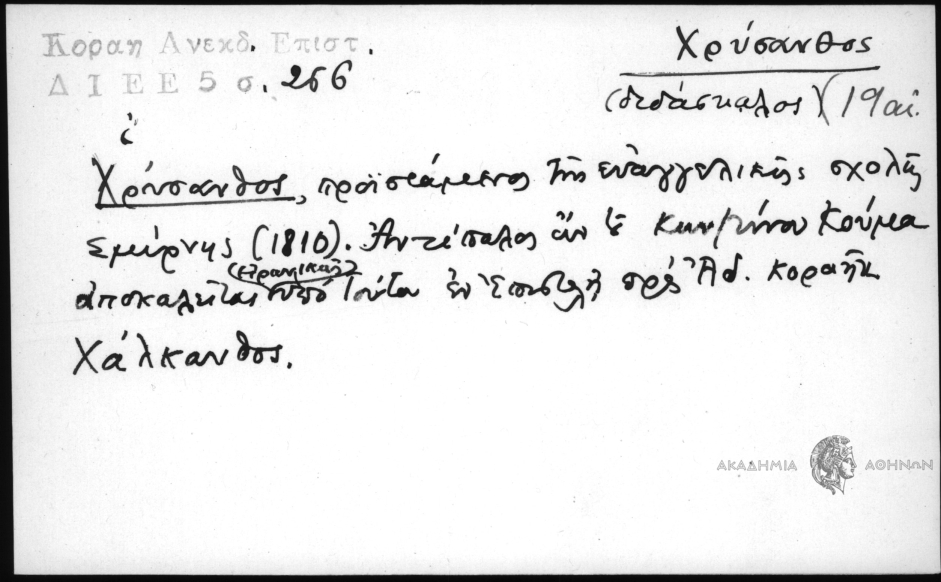 Κοραη Ανεκδ. Επιστ.
ΔΙΕΕ 5 σ. 256
Χρύσανθος
(διδάσκαλος) (19 αἰ.
ὁ
Χρύσανθος, προϊστάμενος τῆς εὐαγγελικῆς σχολῆς
Σμύρνης (1810). Ἀντίπαλος ὢν τ Κων/τίνου Κούμα
(εἰρωνικῶς)
ἀποκαλεῖται ὑπὸ τούτου ἐν ἐπιστολῇ πρὸς Ἀδ. Κοραῆν
Χάλκανθος.
ΑΚΑΔΗΜΙΑ ΑΘΗΝΩΝ